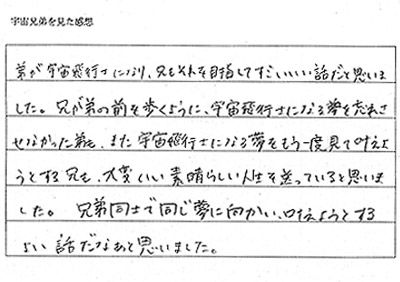 宇宙兄弟を見た感想
弟が宇宙飛行士になり、兄もそれを目指してすごいいい話だと思いま
した。兄が弟の前を歩くように、宇宙飛行士になる夢を忘れさ
せなかった弟も、また宇宙飛行士になる夢をもう一度見て叶えよ
うとする兄も、大変いい素晴らしい人生を送っていると思いま
した。 兄弟同士で同じ夢に向かい、叶えようとする
よい話だなあと思いました。